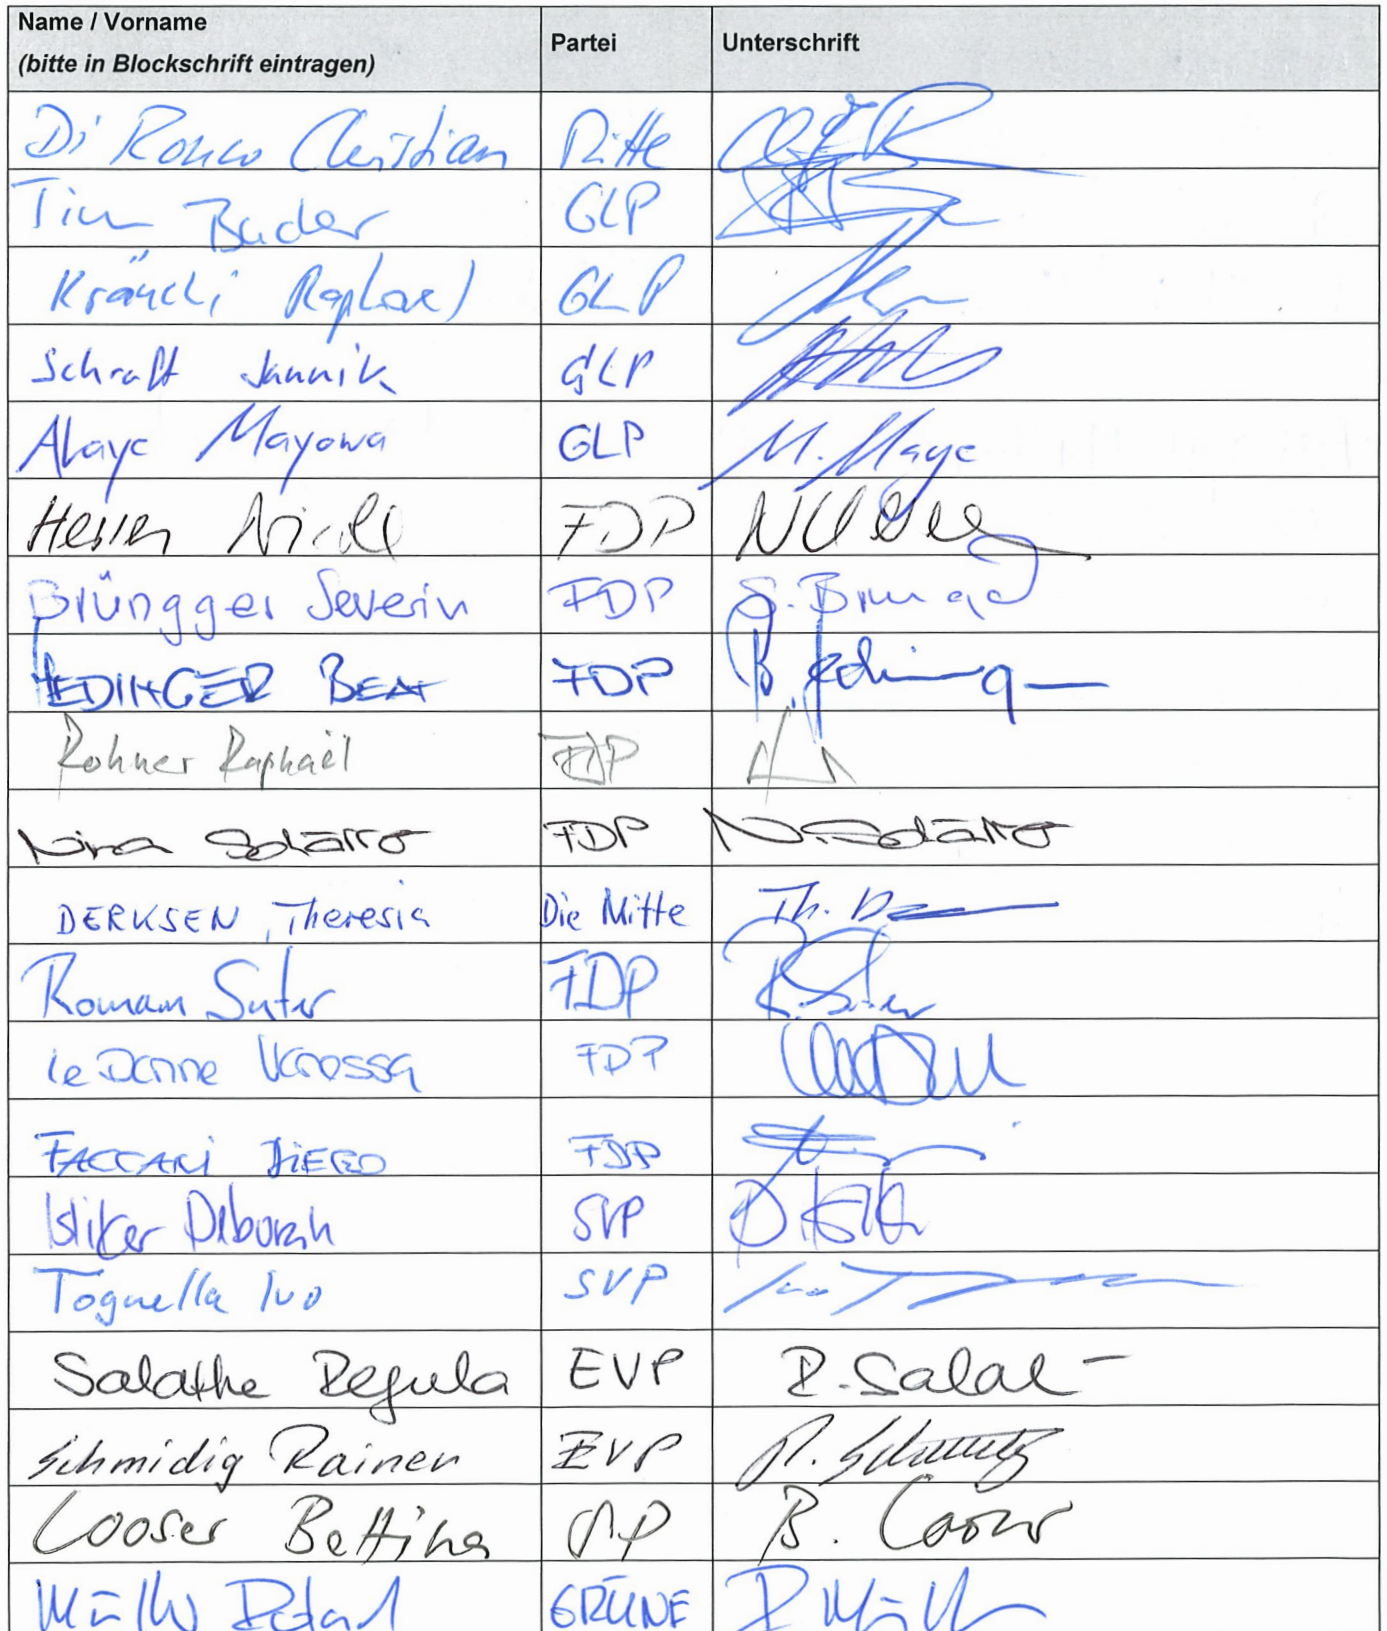 Name / Vorname
(bitte in Blockschrift eintragen)
Partei
Unterschrift
Di Ronco Christian Mitte
Tim Bucher GLP
Kräuchi Raphael GLP
Schraft Jannik GLP
Alaye Mayowa GLP M. Alaye
Herren Nicole FDP
Brüngger Severin FDP S. Brüngg
HEDINGER BEAT FDP B. Hedinger
Rohner Raphaël FDP
Nina Schärrer FDP N. Schärrer
DERKSEN, Theresia Die Mitte Th. D
Roman Suter FDP R. Suter
Le Donne Vanessa FDP
FACCANI DIEGO FDP
Isliker Deborah SVP
Tognella Ivo SVP Ivo
Salathe Regula EVP R. Salat
Schmidig Rainer EVP R. Schmidig
Looser Bettina SP B. Looser
Müller Roland GRÜNE R Müller